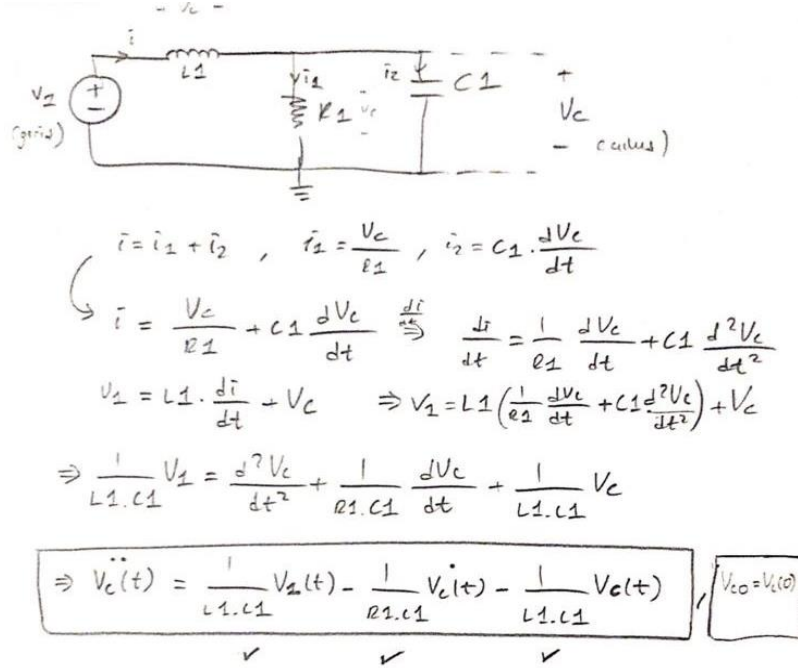 i
L1
V1
(giriş)
+
-
i1
R1
Vc
i2
C1
+
Vc
-
i = i1 + i2 , i1 = Vc/R1 , i2 = C1 . dVc/dt
i = Vc/R1 + C1 dVc/dt di/dt ⇒ di/dt = 1/R1 dVc/dt + C1 d²Vc/dt²
V1 = L1 . di/dt + Vc ⇒ V1 = L1 (1/R1 dVc/dt + C1 d²Vc/dt²) + Vc
⇒ 1/L1.C1 V1 = d²Vc/dt² + 1/R1.C1 dVc/dt + 1/L1.C1 Vc
⇒ V̈c(t) = 1/L1.C1 V1(t) - 1/R1.C1 V̇c(t) - 1/L1.C1 Vc(t) , Vc0 = Vc(0)
✓ ✓ ✓